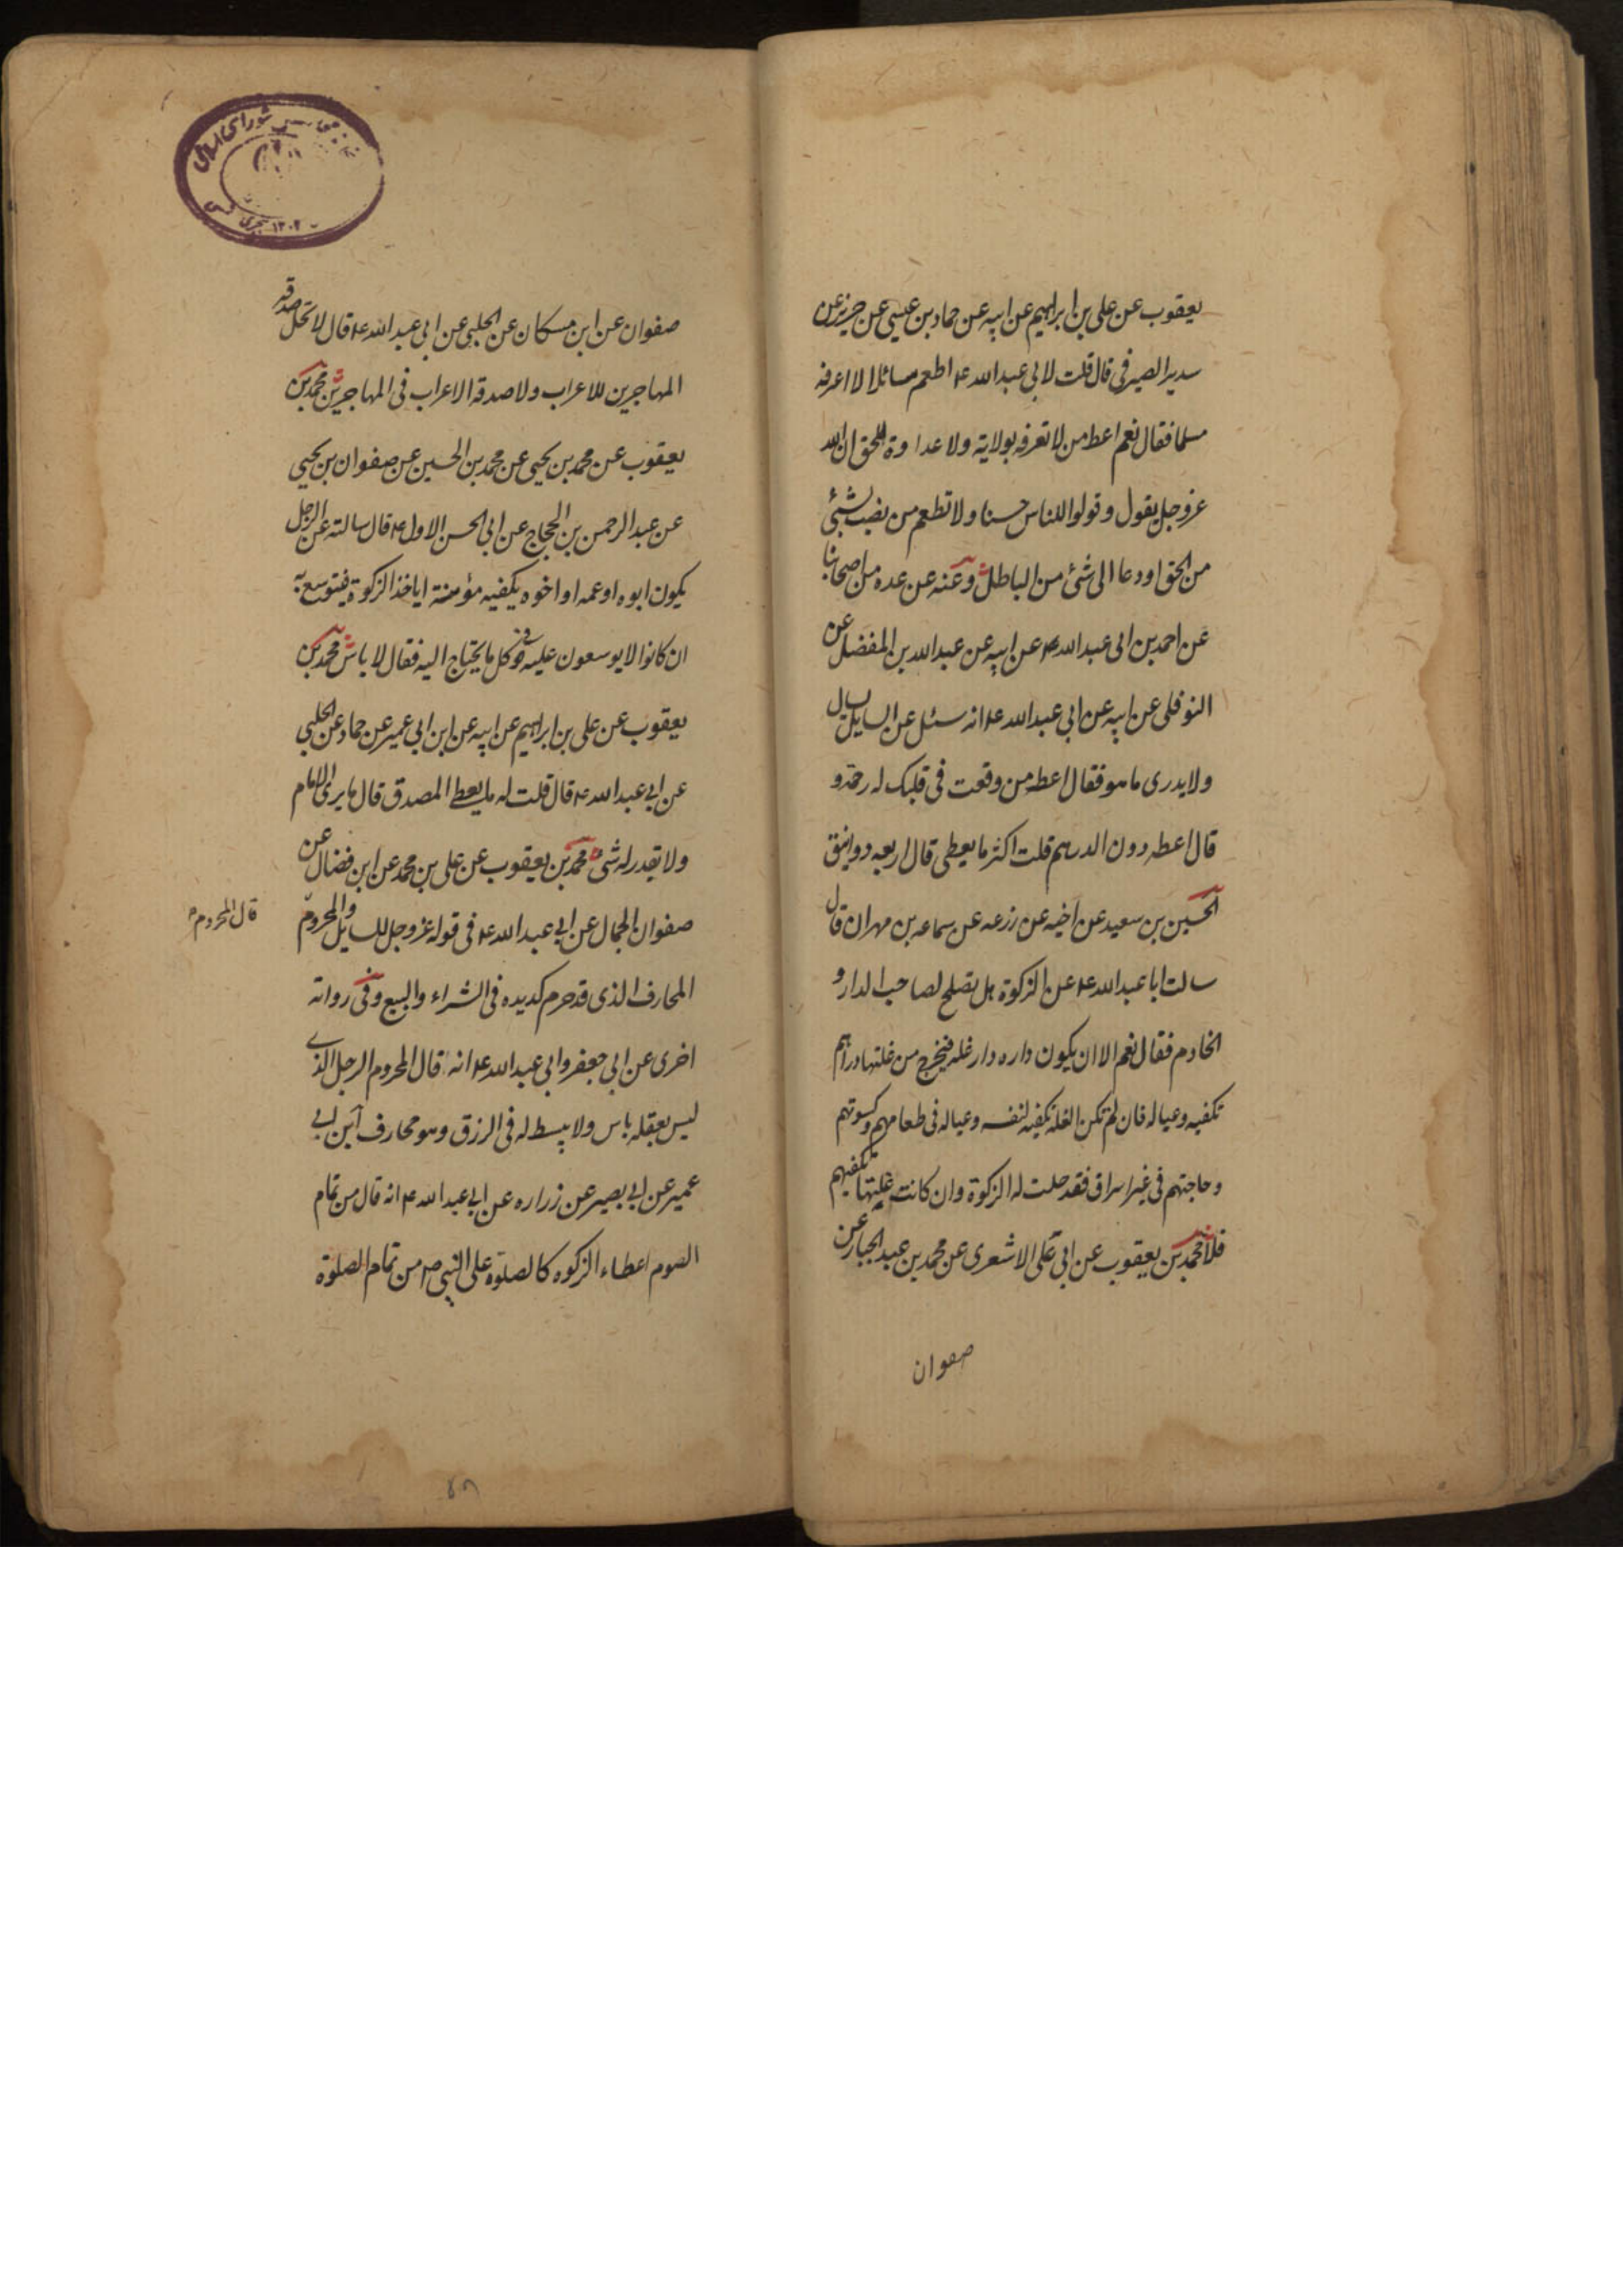 يعقوب عن على بن ابراهيم عن ابيه عن حماد بن عيسى عن حريز عن
سدير الصيرفى قال قلت لابى عبدالله ع اطعم سائلا لا اعرفه
مسلما فقال نعم اعط من لا تعرفه بولاية ولا عداوة للحق ان الله
عز وجل يقول وقولوا للناس حسنا ولا تطعم من نصب لشئ
من الحق او دعا الى شئ من الباطل وعنه عن عدة من اصحابنا
عن احمد بن ابى عبدالله عن ابيه عن عبدالله بن المفضل عن
النوفلى عن ابيه عن ابى عبدالله ع انه سئل عن السايل يسال
ولا يدرى ما هو فقال اعط من وقعت فى قلبك له رحمة و
قال اعطه دون الدرهم قلت اكثر ما يعطى قال اربعه دوانيق
الحسين بن سعيد عن اخيه عن زرعه عن سماعه بن مهران قال
سالت ابا عبدالله ع عن الزكوة هل تصلح لصاحب الدار و
الخادم فقال نعم الا ان يكون داره دار غله فيخرج من غلتها دراهم
تكفيه وعياله فان لم تكن الغلة تكفيه لنفسه وعياله فى طعامهم وكسوتهم
وحاجتهم فى غير اسراف فقد حلت له الزكوة وان كانت غلتها تكفيهم
فلا محمد بن يعقوب عن ابى على الاشعرى عن محمد بن عبد الجبار عن
صفوان
صفوان عن ابن مسكان عن الحلبى عن ابى عبدالله ع قال لا تحل صدقه
المهاجرين للاعراب ولا صدقة الاعراب فى المهاجرين محمد بن
يعقوب عن محمد بن يحيى عن محمد بن الحسين عن صفوان بن يحيى
عن عبد الرحمن بن الحجاج عن ابى الحسن الاول ع قال سالته عن الرجل
يكون ابوه او عمه او اخوه يكفيه مؤنسته اياخذ الزكوة فيتوسع به
ان كانوا لا يوسعون عليه فى كل ما يحتاج اليه فقال لا باس محمد بن
يعقوب عن على بن ابراهيم عن ابيه عن ابن ابى عمير عن حماد عن الحلبى
عن ابى عبدالله ع قال قلت له ما يعطى المصدق قال ما يرى الامام
ولا يقدر له شئ محمد بن يعقوب عن على بن محمد عن ابن فضال عن
صفوان الجمال عن ابى عبدالله ع فى قوله عز وجل للسايل والمحروم
قال المحروم
المحارف الذى قد حرم كد يده فى الشراء والبيع وفى رواته
اخرى عن ابى جعفر وابى عبدالله ع انه قال المحروم الرجل الذى
ليس بعقله باس ولا يبسط له فى الرزق وهو محارف ابن ابى
عمير عن ابى بصير عن زراره عن ابى عبدالله ع انه قال من تمام
الصوم اعطاء الزكوه كالصلوة على النبى ص من تمام الصلوة